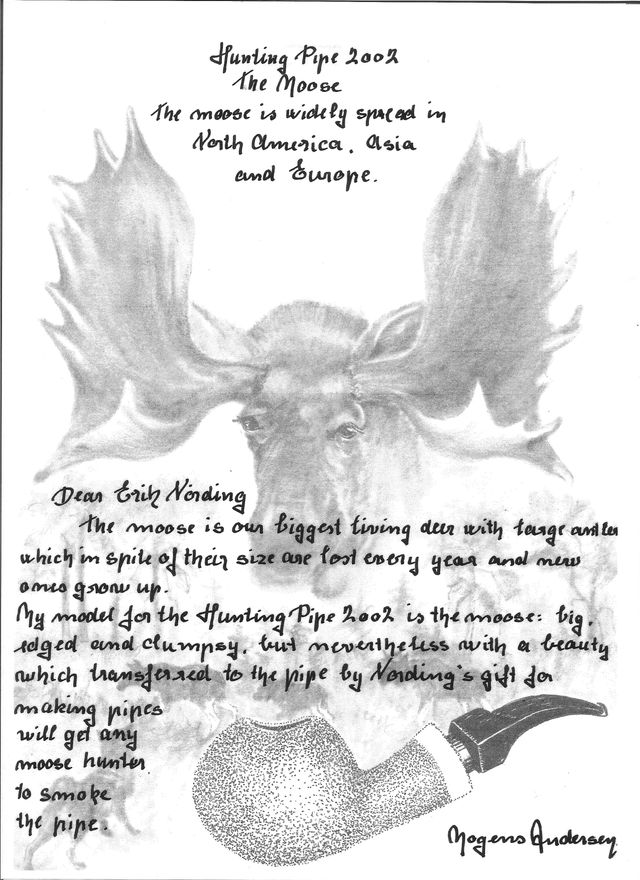 Hunting Pipe 2002
The Moose
The moose is widely spread in
North America. Asia
and Europe.
Dear Erik Nørding
The moose is our biggest living deer with large antler
which in spite of their size are lost every year and new
ones grow up.
My model for the Hunting Pipe 2002 is the moose: big,
edged and clumpsy, but nevertheless with a beauty
which transferred to the pipe by Nørding's gift for
making pipes
will get any
moose hunter
to smoke
the pipe.
Mogens Andersen